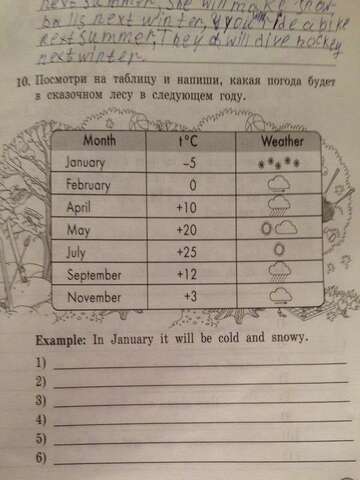 next summer, She will make snow-
balls next winter, you will ride a bike
next summer, They will dive hockey
next winter.
10. Посмотри на таблицу и напиши, какая погода будет
в сказочном лесу в следующем году.
Month t°C Weather
January –5
February 0
April +10
May +20
July +25
September +12
November +3
Example: In January it will be cold and snowy.
1)
2)
3)
4)
5)
6)